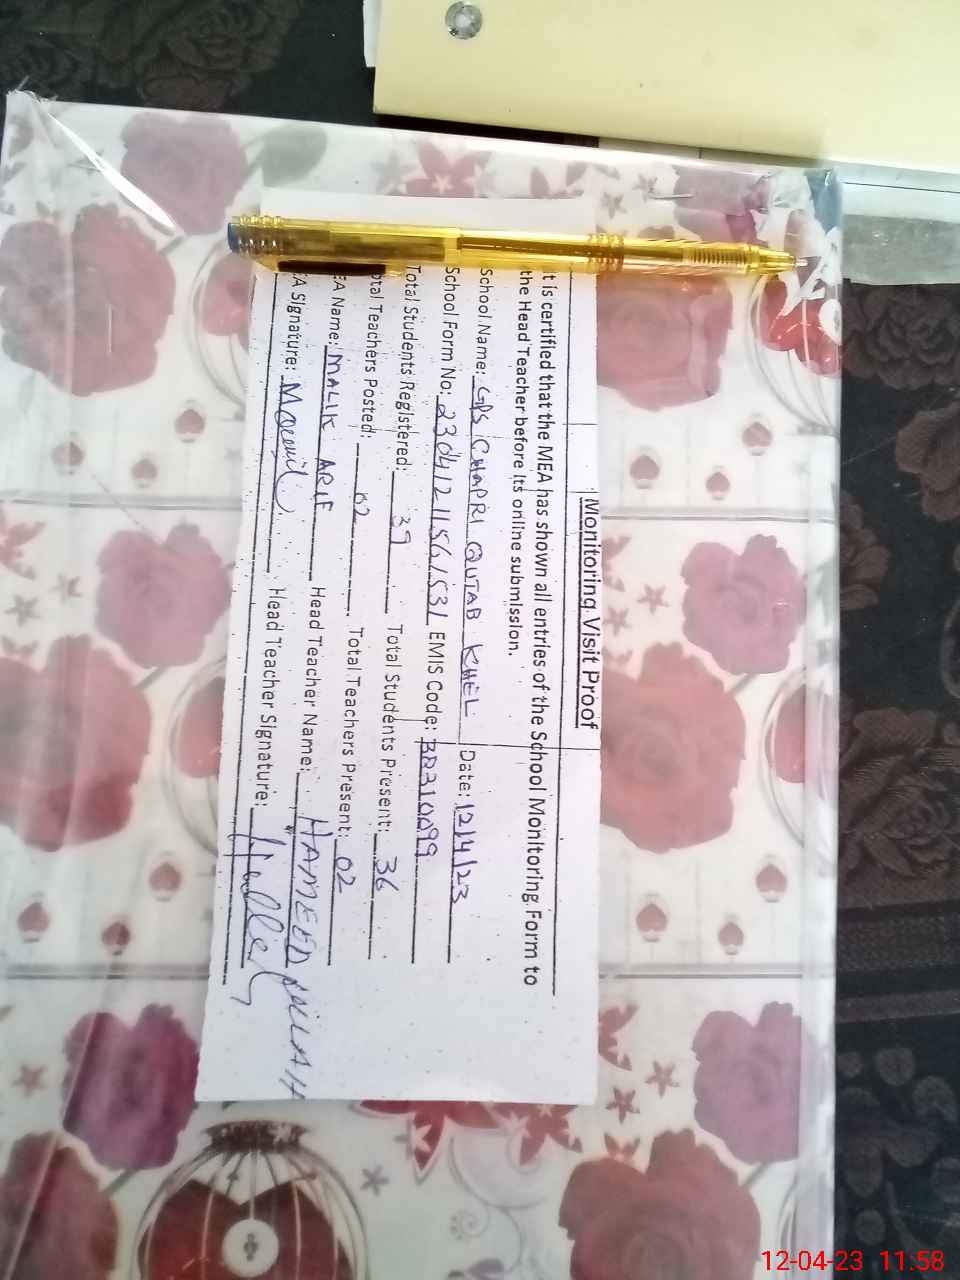 Monitoring Visit Proof
t is certified that the MEA has shown all entries of the School Monitoring Form to
the Head Teacher before its online submission.
School Name: GPS CHAPRI QUTAB KHEL Date: 12/4/23
School Form No: 230412 1156 1531 EMIS Code: BD310099
Total Students Registered: 39 Total Students Present: 36
otal Teachers Posted: 02 Total Teachers Present: 02
EA Name: MALIK ARIF Head Teacher Name: HAMEED ULLAH
EA Signature: Head Teacher Signature:
12-04-23 11:58